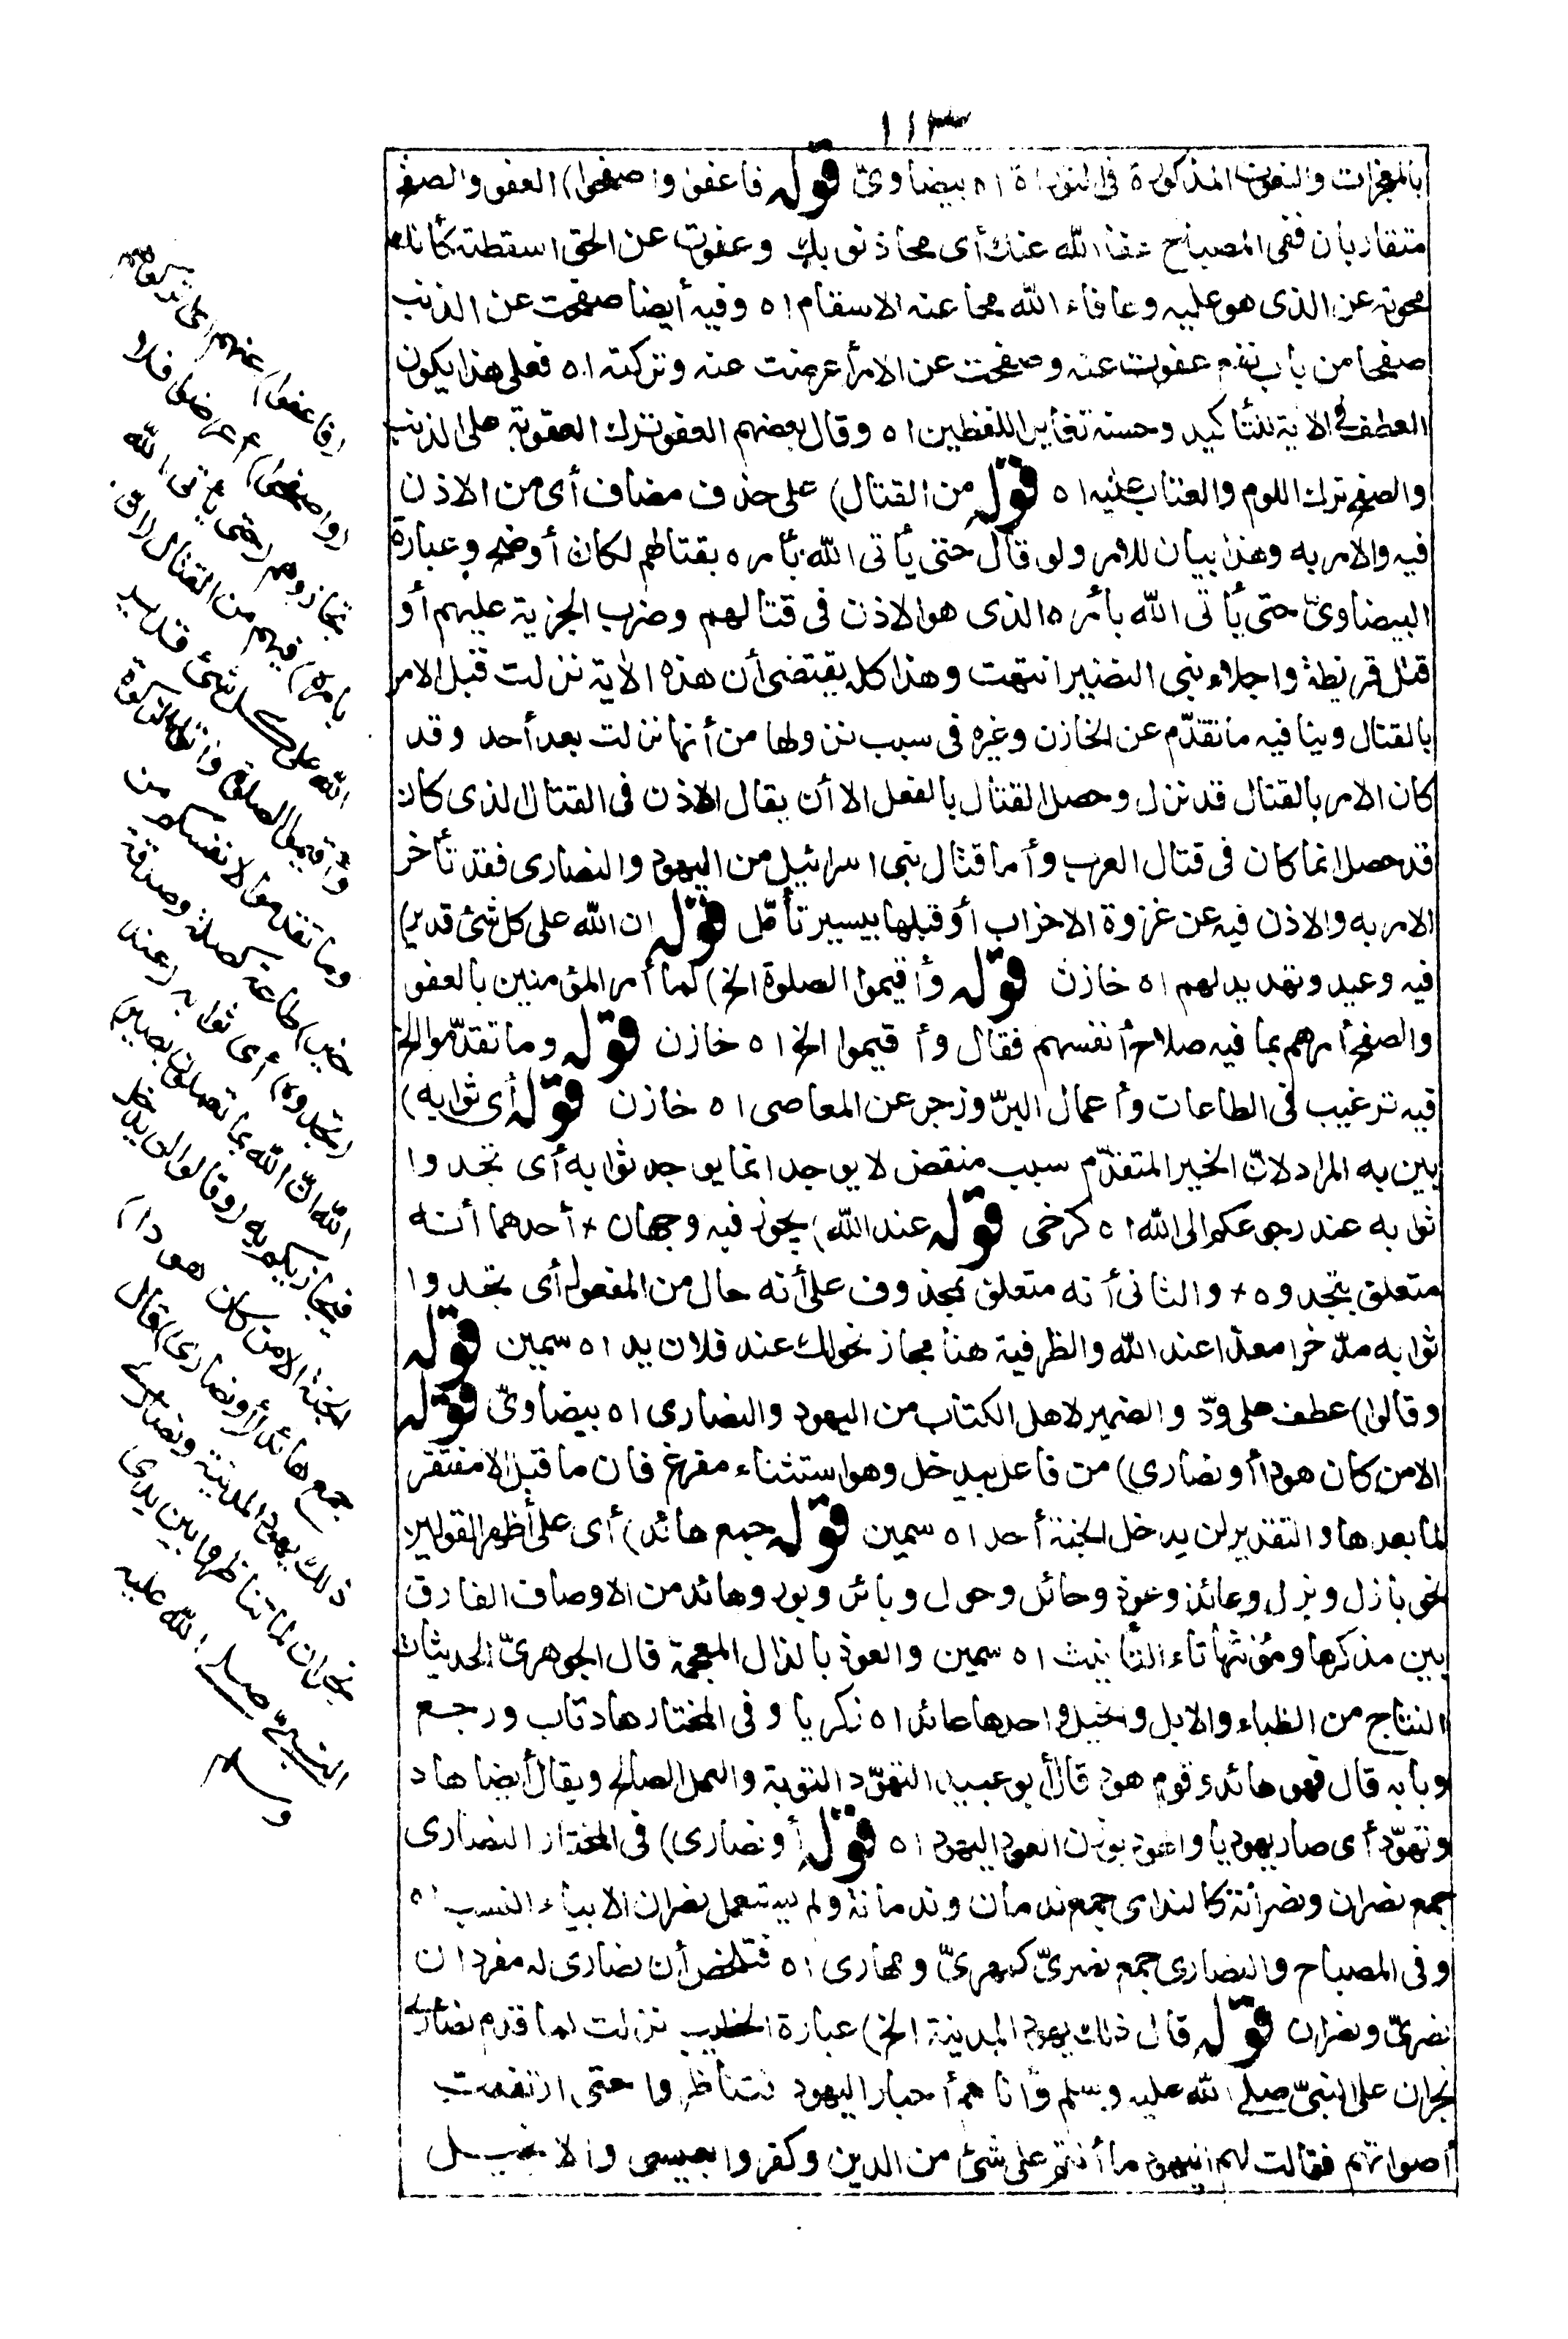 ١١٣
بالمعجزات والنعوت المذكورة فى التوراة اه بيضاوىّ قوله فاعفوا واصفحوا) العفو والصفح
متقاربان ففى المصباح عفا الله عنك أى محا ذنوبك وعفوت عن الحق اسقطته كأنك
محوته عن الذى هو عليه وعافاه الله محا عنه الاسقام اه وفيه أيضا صفحت عن الذنب
صفحا من باب نفع عفوت عنه وصفحت عن الامر أعرضت عنه وتركته اه فعلى هذا يكون
العطف فى الاية للتأكيد وحسنه تغاير اللفظين اه وقال بعضهم العفو ترك العقوبة على الذنب
والصفح ترك اللوم والعتاب عليه اه قوله من القتال) على حذف مضاف أى من الاذن
فيه والامر به وهذا بيان للامر ولو قال حتى يأتى الله بأمره بقتالهم لكان أوضح وعبارة
البيضاوىّ حتى يأتى الله بأمره الذى هو الاذن فى قتالهم وضرب الجزية عليهم أو
قتل قريظة واجلاء بنى النضير انتهت وهذا كله يقتضى أن هذه الأية نزلت قبل الامر
بالقتال وينافيه ما تقدّم عن الخازن وغيره فى سبب نزولها من أنها نزلت بعد أحد وقد
كان الامر بالقتال قد نزل وحصل القتال بالفعل الا أن يقال الاذن فى القتال الذى كان
قد حصل انما كان فى قتال العرب وأما قتال بنى اسرائيل من اليهود والنصارى فقد تأخر
الامر به والاذن فيه عن غزوة الاحزاب أو قبلها بيسير تأمّل قوله ان الله على كل شئ قدير)
فيه وعيد وتهديد لهم اه خازن قوله وأقيموا الصلوة الخ) لما أمر المؤمنين بالعفو
والصفح أمرهم بما فيه صلاح أنفسهم فقال وأقيموا الخ اه خازن قوله وما تقدّموا الخ
فيه ترغيب فى الطاعات وأعمال البرّ وزجر عن المعاصى اه خازن قوله أى ثوابه)
بين به المراد لانّ الخير المتقدّم سبب منقض لا يوجد انما يوجد ثوابه أى تجدوا
ثوابه عند رجوعكم الى الله اه كرخى قوله عند الله) يجوز فيه وجهان + أحدهما أنه
متعلق بتجدوه + والثانى أنه متعلق بمحذوف على أنه حال من المفعول أى تجدوا
ثوابه مدّخرا معدّا عند الله والظرفية هنا مجاز نحو لك عند فلان يد اه سمين قوله
وقالوا) عطف على ودّ والضمير لاهل الكتاب من اليهود والنصارى اه بيضاوىّ قوله
الا من كان هودا أو نصارى) من فاعل بيدخل وهو استثناء مفرغ فان ما قبل الا مفتقر
لما بعدها والتقدير لن يدخل الجنة أحد اه سمين قوله جمع هائد) أى على أظهر القولين
نحو بازل وبزل وعائذ وعوذ وحائل وحول وبائر وبور وهائد من الاوصاف الفارق
بين مذكرها ومؤنثها تاء التأنيث اه سمين والعوذ بالذال المعجمة قال الجوهرىّ الحديثات
النتاج من الظباء والابل والخيل واحدها عائذ اه زكريا وفى المختار هاد تاب ورجع
وبابه قال فهو هائد وقوم هود قال أبو عبيد التهوّد التوبة والعمل الصالح ويقال أيضا هاد
وتهوّد أى صار يهوديا والهود بوزن العود اليهود اه قوله أو نصارى) فى المختار النصارى
جمع نصران ونصرانة كالندامى جمع ندمان وندمانة ولم يستعمل نصران الا بياء النسب اه
وفى المصباح والنصارى جمع نصرىّ كمهرىّ ومهارى اه فتلخص أن نصارى له مفردان
نصرىّ ونصران قوله قال ذلك يهود المدينة الخ) عبارة الخطيب نزلت لما قدم نصارى
نجران على النبىّ صلى الله عليه وسلم وأتاهم أحبار اليهود فتناظروا حتى ارتفعت
أصواتهم فقالت لهم اليهود ما أنتم على شئ من الدين وكفروا بعيسى والانجيل
(فاعفوا) عنهم أى اتركوهم
(واصفحوا) اعرضوا فلا
تجازوهم (حتى يأتى الله
بأمره) فيهم من القتال (ان
الله على كل شئ قدير
وأقيموا الصلوة وآتوا الزكوة
وما تقدموا لانفسكم من
خير) طاعة كصلة وصدقة
(تجدوه) أى ثوابه (عند
الله ان الله بما تعملون بصير)
فيجازيكم به (وقالوا لن يدخل
الجنة الا من كان هودا)
جمع هائد (أو نصارى) قال
ذلك يهود المدينة ونصارى
نجران لما تناظروا بين يدى
النبىّ صلى الله عليه
وسلم